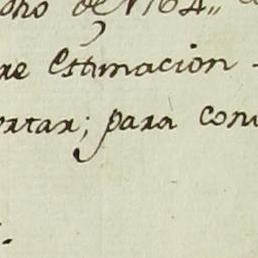 dho de 1764,,
re Estimacion
ortar; para con